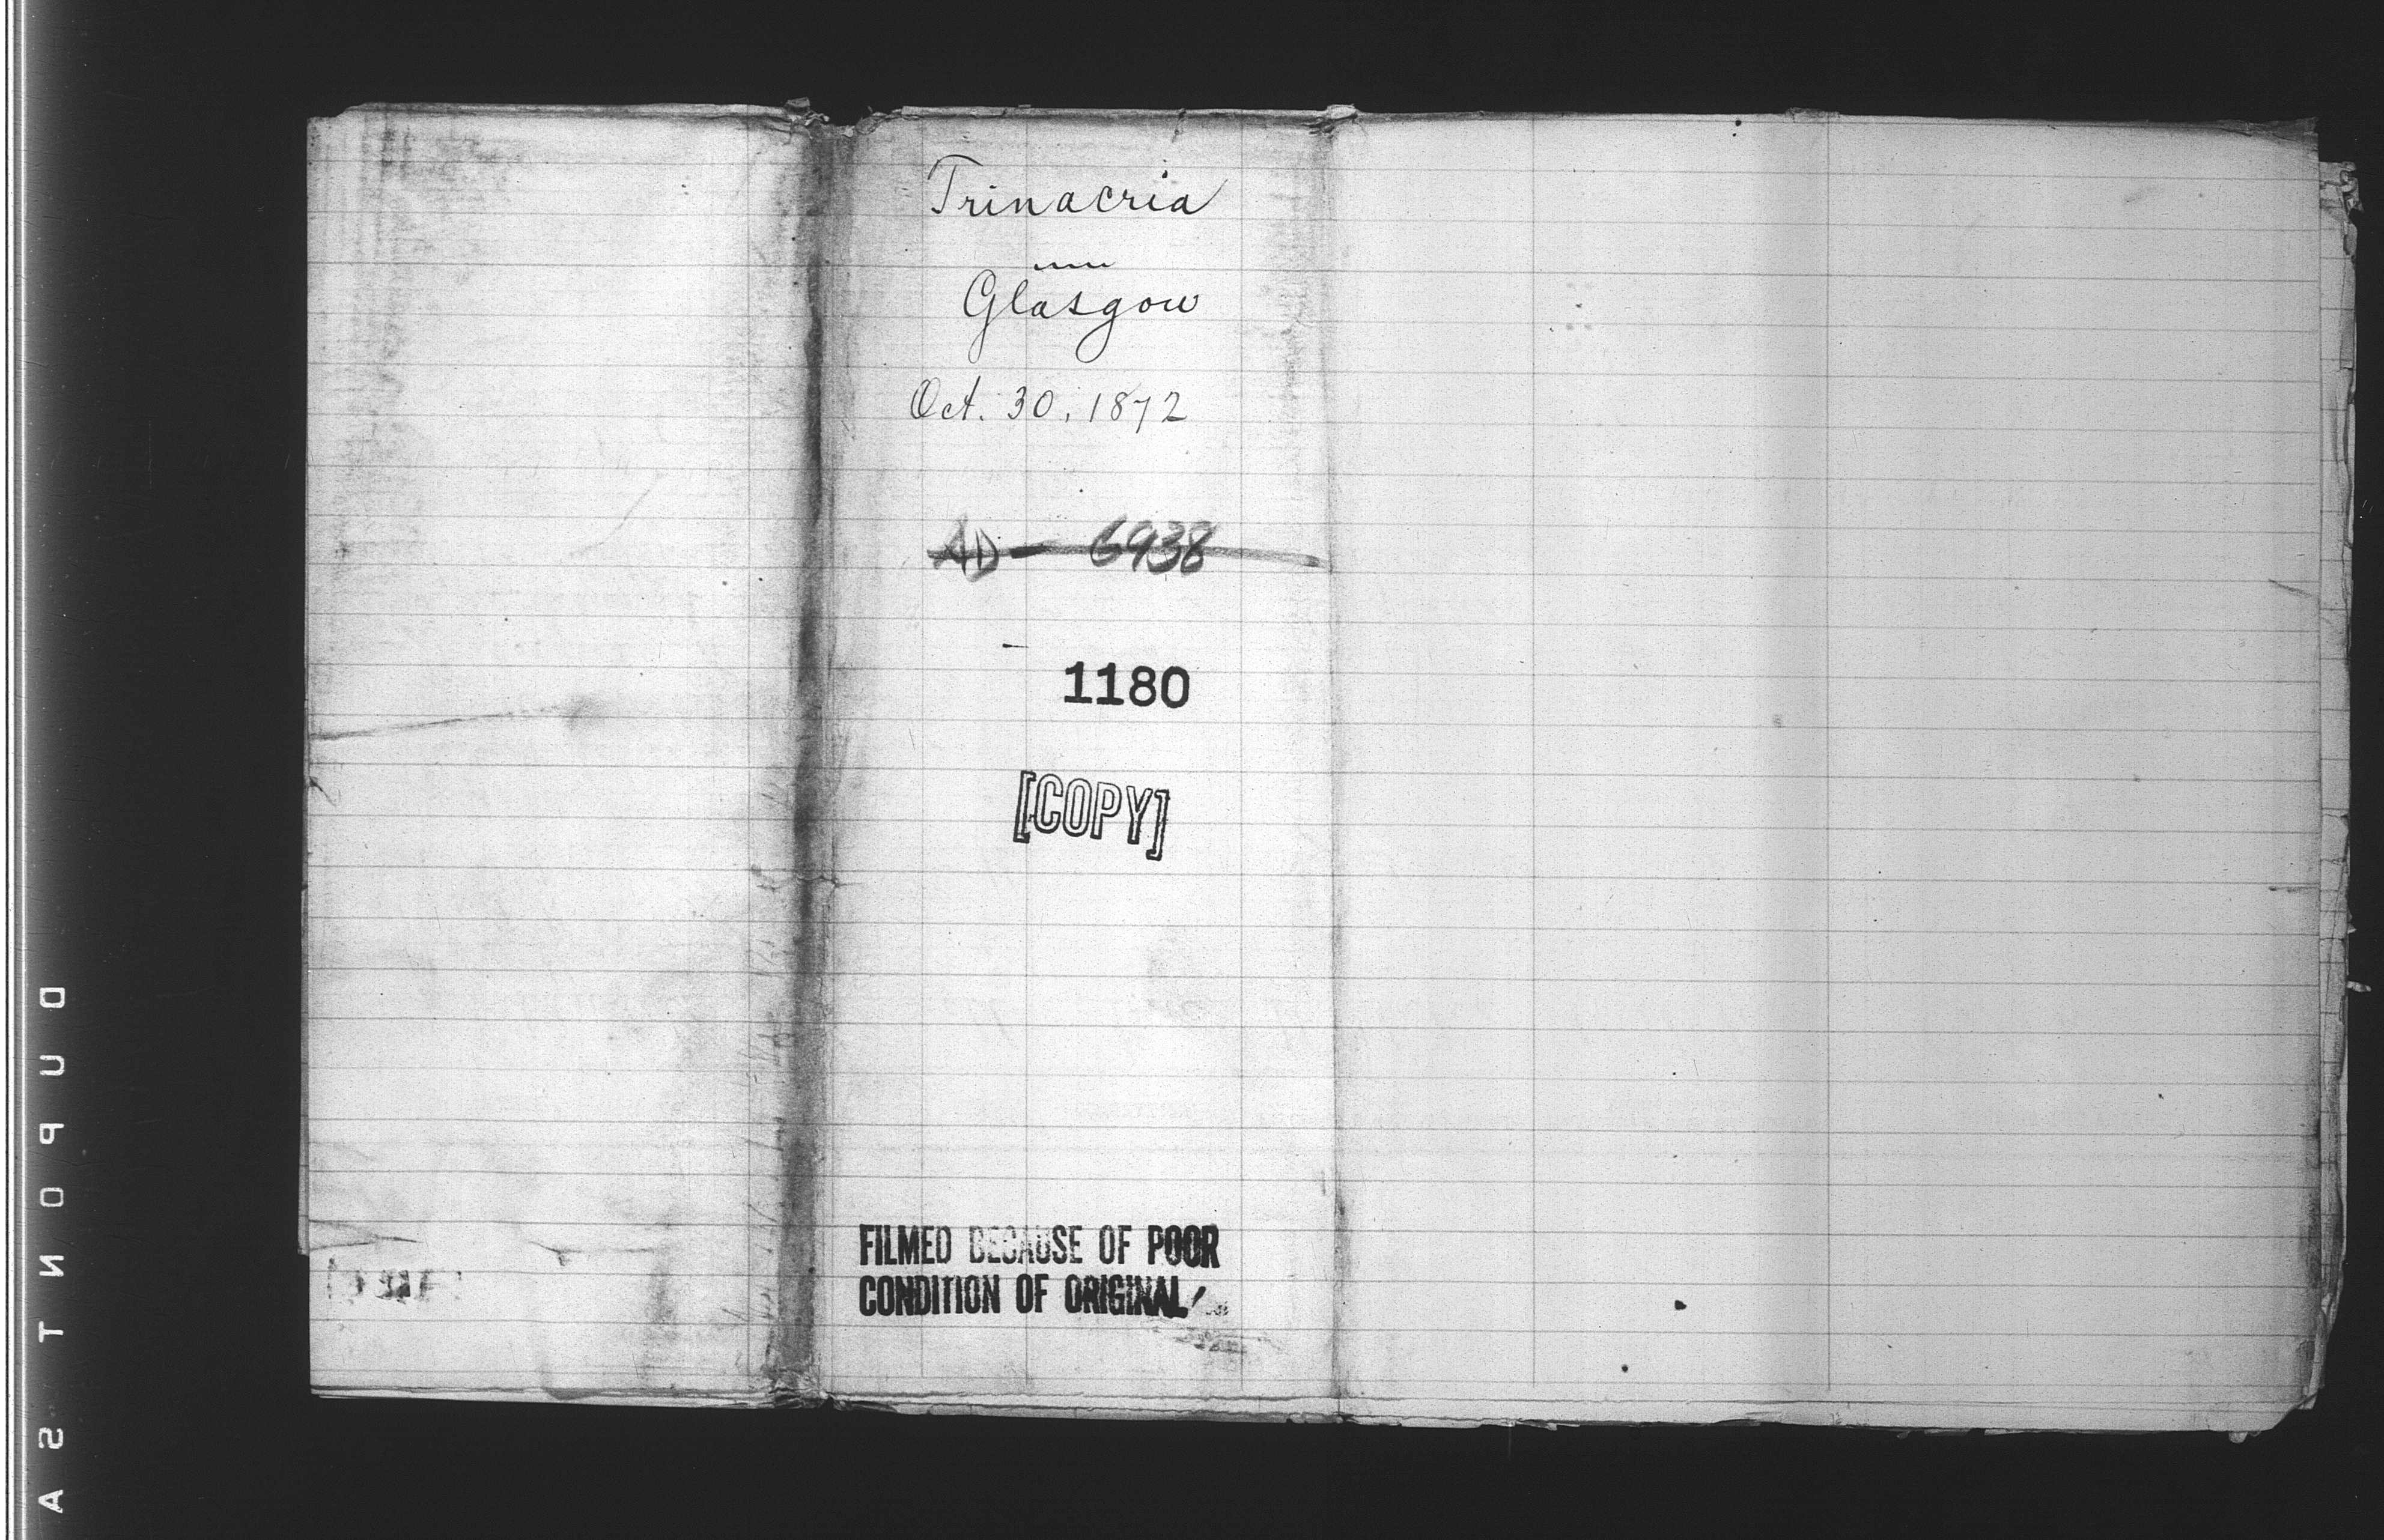 Trinacria
Glasgow
Oct. 30, 1872
AD - 6938
1180
[COPY]
FILMED BECAUSE OF POOR
CONDITION OF ORIGINAL
DUPONT SA